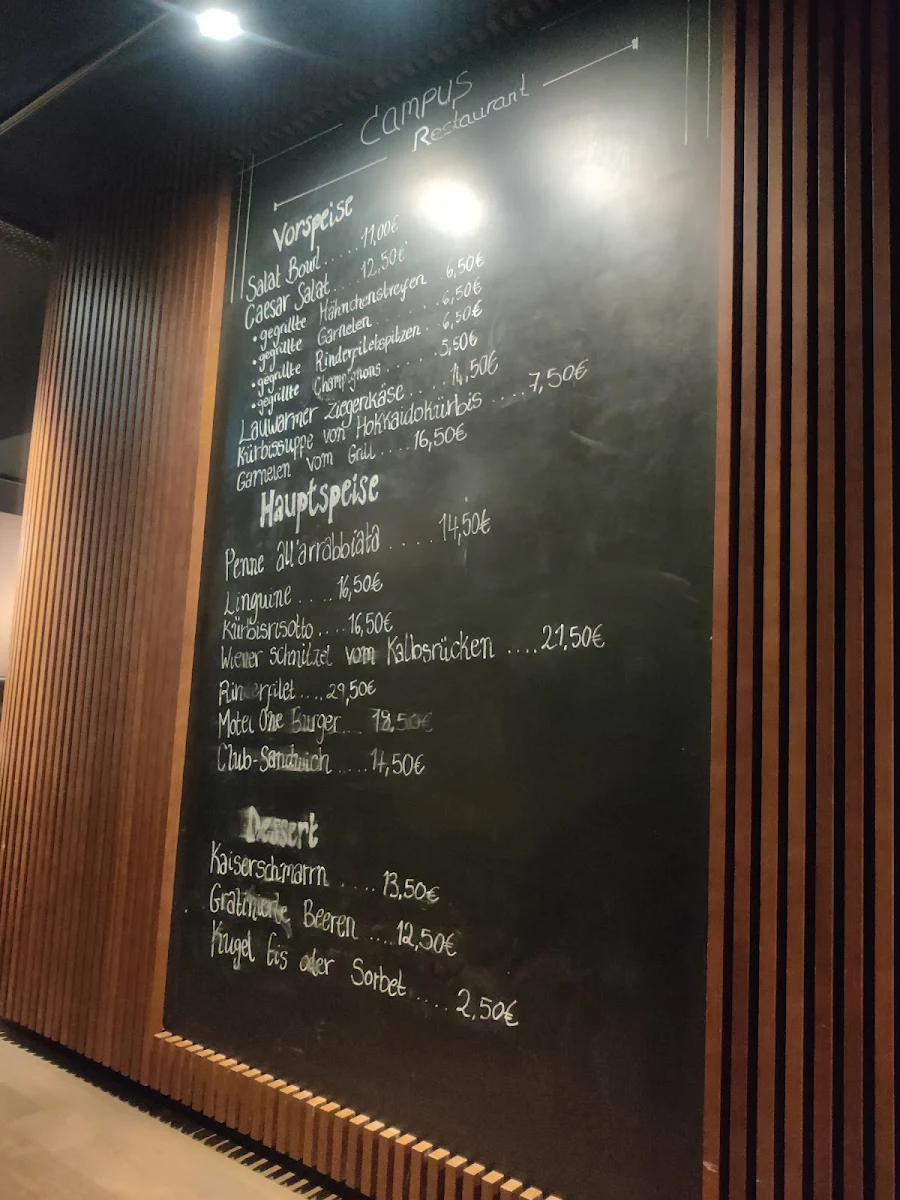 Campus
Restaurant
Vorspeise
Salat Bowl.....11,00€
Caesar Salat...12,50€
• gegrillte Hähnchenstreifen 6,50€
• gegrillte Garnelen.........6,50€
• gegrillte Rinderfiletspitzen..6,50€
• gegrillte Champignons.......5,50€
Lauwarmer Ziegenkäse.....14,50€
Kürbissuppe von Hokkaidokürbis.....7,50€
Garnelen vom Grill.....16,50€
Hauptspeise
Penne all'arrabbiata.....14,50€
Linguine.....16,50€
Kürbisrisotto....16,50€
Wiener Schnitzel vom Kalbsrücken....21,50€
Rinderfilet....29,50€
Motel One Burger....18,50€
Club-Sandwich.....14,50€
Dessert
Kaiserschmarrn.....13,50€
Gratinierte Beeren....12,50€
Kugel Eis oder Sorbet....2,50€